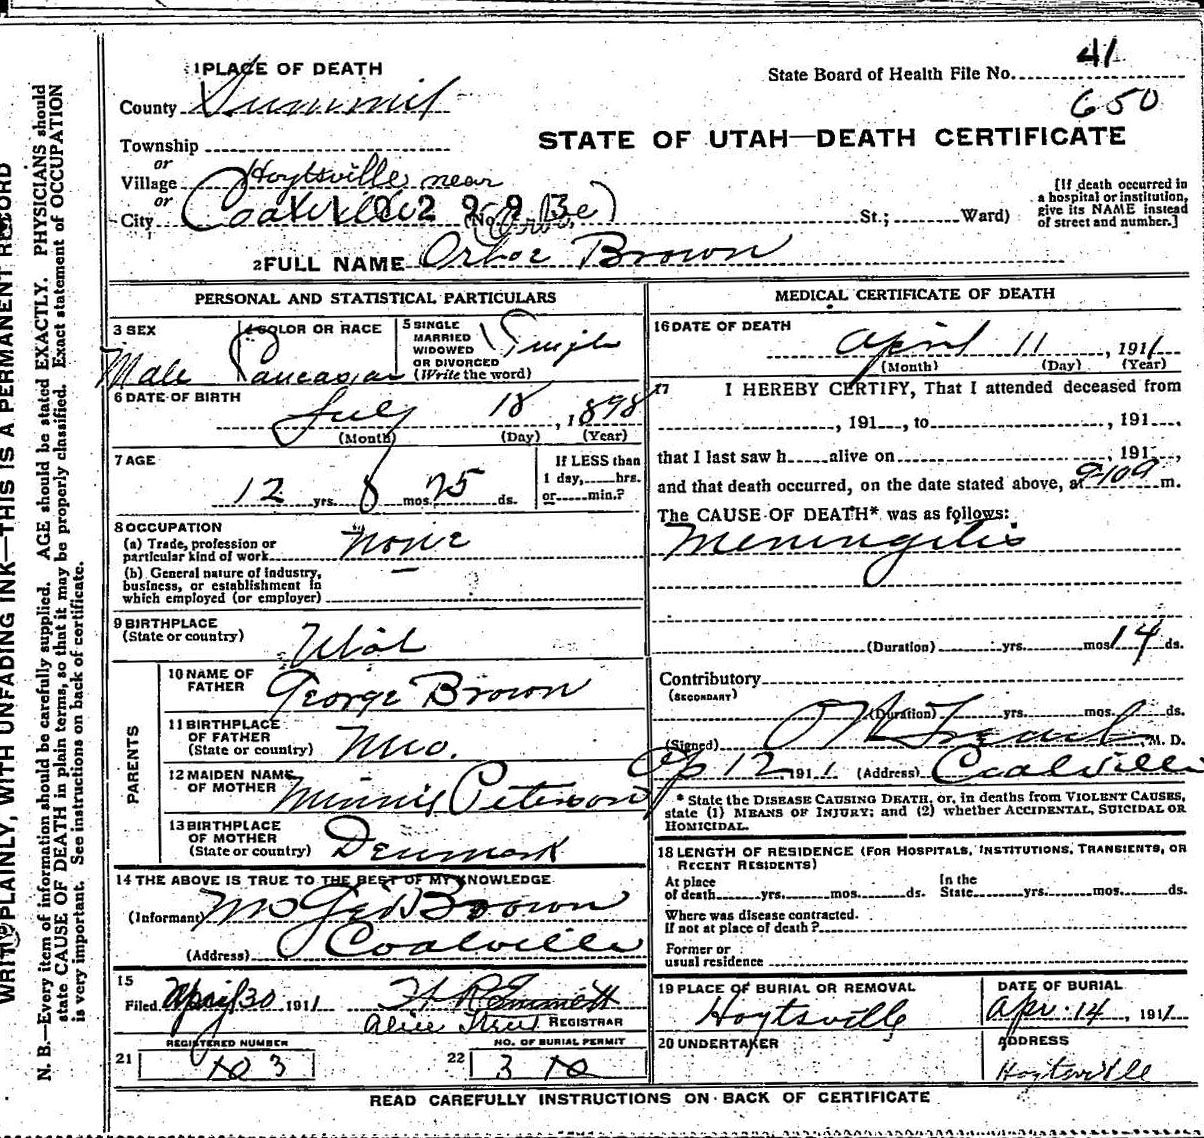 WRITE PLAINLY, WITH UNFADING INK—THIS IS A PERMANENT RECORD
N. B.—Every item of information should be carefully supplied. AGE should be stated EXACTLY. PHYSICIANS should
state CAUSE OF DEATH in plain terms, so that it may be properly classified. Exact statement of OCCUPATION
is very important. See instructions on back of certificate.
1 PLACE OF DEATH
County Summit
Township
or
Village Hoytsville near
or
City Coalville
(No. St.; Ward)
State Board of Health File No. 41
650
STATE OF UTAH—DEATH CERTIFICATE
[If death occurred in
a hospital or institution,
give its NAME instead
of street and number.]
2 FULL NAME Orboe Brown
PERSONAL AND STATISTICAL PARTICULARS
3 SEX
Male
4 COLOR OR RACE
Caucasian
5 SINGLE
MARRIED
WIDOWED
OR DIVORCED
(Write the word)
Single
6 DATE OF BIRTH
July 18, 1898
(Month) (Day) (Year)
7 AGE
12 yrs. 8 mos. 25 ds.
If LESS than
1 day, hrs.
or min.?
8 OCCUPATION
(a) Trade, profession or
particular kind of work None
(b) General nature of industry,
business, or establishment in
which employed (or employer)
9 BIRTHPLACE
(State or country)
Utah
PARENTS
10 NAME OF
FATHER
George Brown
11 BIRTHPLACE
OF FATHER
(State or country)
Mo.
12 MAIDEN NAME
OF MOTHER
Minnie Peterson
13 BIRTHPLACE
OF MOTHER
(State or country)
Denmark
14 THE ABOVE IS TRUE TO THE BEST OF MY KNOWLEDGE
(Informant) Geo Brown
(Address) Coalville
15
Filed April 30 1911
Alice
REGISTRAR
REGISTERED NUMBER
21
3
NO. OF BURIAL PERMIT
22
3
MEDICAL CERTIFICATE OF DEATH
16 DATE OF DEATH
April 11, 1911
(Month) (Day) (Year)
17 I HEREBY CERTIFY, That I attended deceased from
, 191 , to , 191 ,
that I last saw h alive on , 191 ,
and that death occurred, on the date stated above, at m.
The CAUSE OF DEATH* was as follows:
Meningitis
(Duration) yrs. mos. 14 ds.
Contributory
(SECONDARY)
(Duration) yrs. mos. ds.
(Signed) M. D.
Ap 12 1911 (Address) Coalville
* State the DISEASE CAUSING DEATH, or, in deaths from VIOLENT CAUSES,
state (1) MEANS OF INJURY; and (2) whether ACCIDENTAL, SUICIDAL OR
HOMICIDAL.
18 LENGTH OF RESIDENCE (FOR HOSPITALS, INSTITUTIONS, TRANSIENTS, OR
RECENT RESIDENTS)
At place
of death yrs. mos. ds.
In the
State yrs. mos. ds.
Where was disease contracted.
If not at place of death?
Former or
usual residence
19 PLACE OF BURIAL OR REMOVAL
Hoytsville
DATE OF BURIAL
Apr. 14, 1911
20 UNDERTAKER
ADDRESS
Hoytsville
READ CAREFULLY INSTRUCTIONS ON BACK OF CERTIFICATE